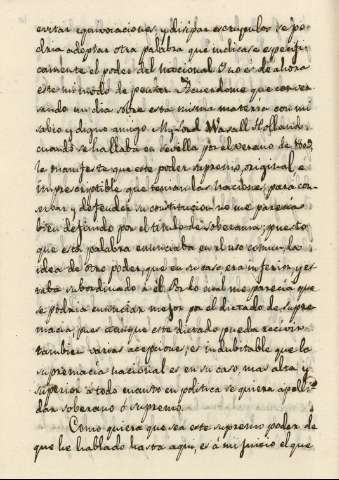 evitar equivocaciones, y disipar escrupulos se po
dria adoptar otra palabra que indicase especifi
camente el poder del nacional. Y no es de ahora
este mi modo de pensar. Acuerdome que conver
sando un dia sobre esta misma materia con mi
sabio y digno amigo Mylord Wasall Holland
cuando se hallaba en Sevilla por el verano de 1809,
le manifeste que este poder supremo, original é
imprescriptible que tenian las naciones para con
servar y defender su constitucion no me parecia
bien definido por el titulo de soberania; puesto
que esta palabra enunciaba en el uso comun la
idea de otro poder, que en su caso era inferior, y es
taba subordinado á él. Por lo cual me parecia que
se podria enunciar mejor por el dictado de supre
macia; pues aunque este dictado pueda recivir
tambien varias acepciones, es indubitable que la
supremacia nacional es en su caso mas alta y
superior á todo cuanto en politica se quiera apelli
dar soberano ó supremo.
Como quiera que sea este supremo poder de
que he hablado hasta aqui, es á mi juicio el que